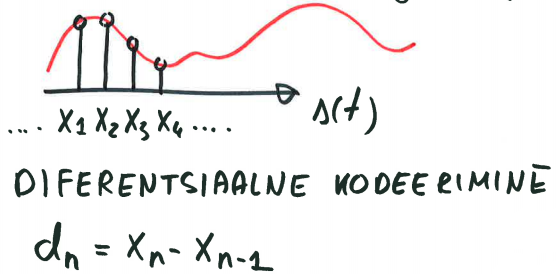 s(t)
.... X1 X2 X3 X4 ....
DIFERENTSIAALNE KODEERIMINE
dn = Xn - Xn-1